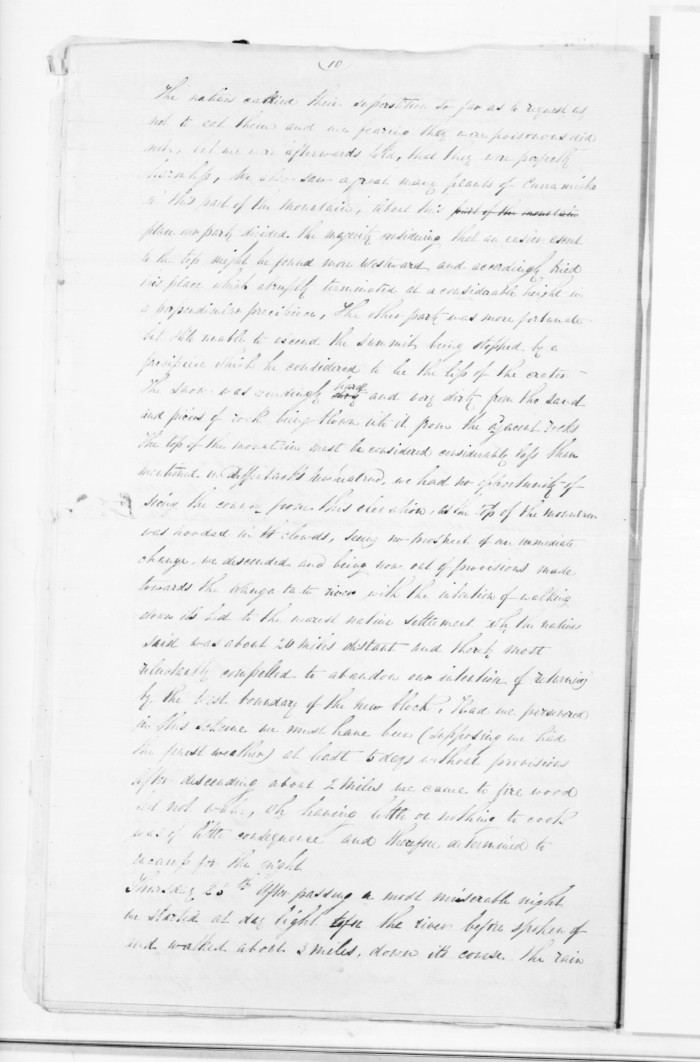 (10)
The natives carried their superstition so far as to request us
not to eat them and we fearing they were poisonous did
not, but we were afterwards told, that they were perfectly
harmless, We also saw a great many plants of
in this part of the mountain, About this part of the mountain
place our party divided. the majority considering that an easier ascent
to the top might be found more Westward and accordingly tried
this place which abruptly terminated at a considerable height in
a perpendicular precipice, The other party was more fortunate
but still unable to ascend the summit being stopped by a
precipice which he considered to be the lips of the crater
The snow was exceedingly hard and very dirty from the sand
and pieces of rock being blown into it from the adjacent rocks
The top of the mountain must be considered considerably less than
mentioned in Dieffenbach's New Zealand, we had no opportunity of
seeing the country from this elevation, as the top of the mountain
was hooded in the clouds, seeing no prospect of an immediate
change, we descended and being now out of provisions made
towards the river with the intention of walking
down its bed to the nearest native settlement wh the natives
said was about 20 miles distant and thereby most
reluctantly compelled to abandon our intention of returning
by the West boundary of the new block, Had we persevered
in this scheme we must have been (supposing we had
the finest weather) at least 5 days without provisions
After descending about 2 miles we came to fire wood
but not water, wh having little or nothing to cook
was of little consequence and therefore determined to
encamp for the night
Thursday 25th After passing a most miserable night
we started at day light for the river before spoken of
and walked about 3 miles, down its course. The rain